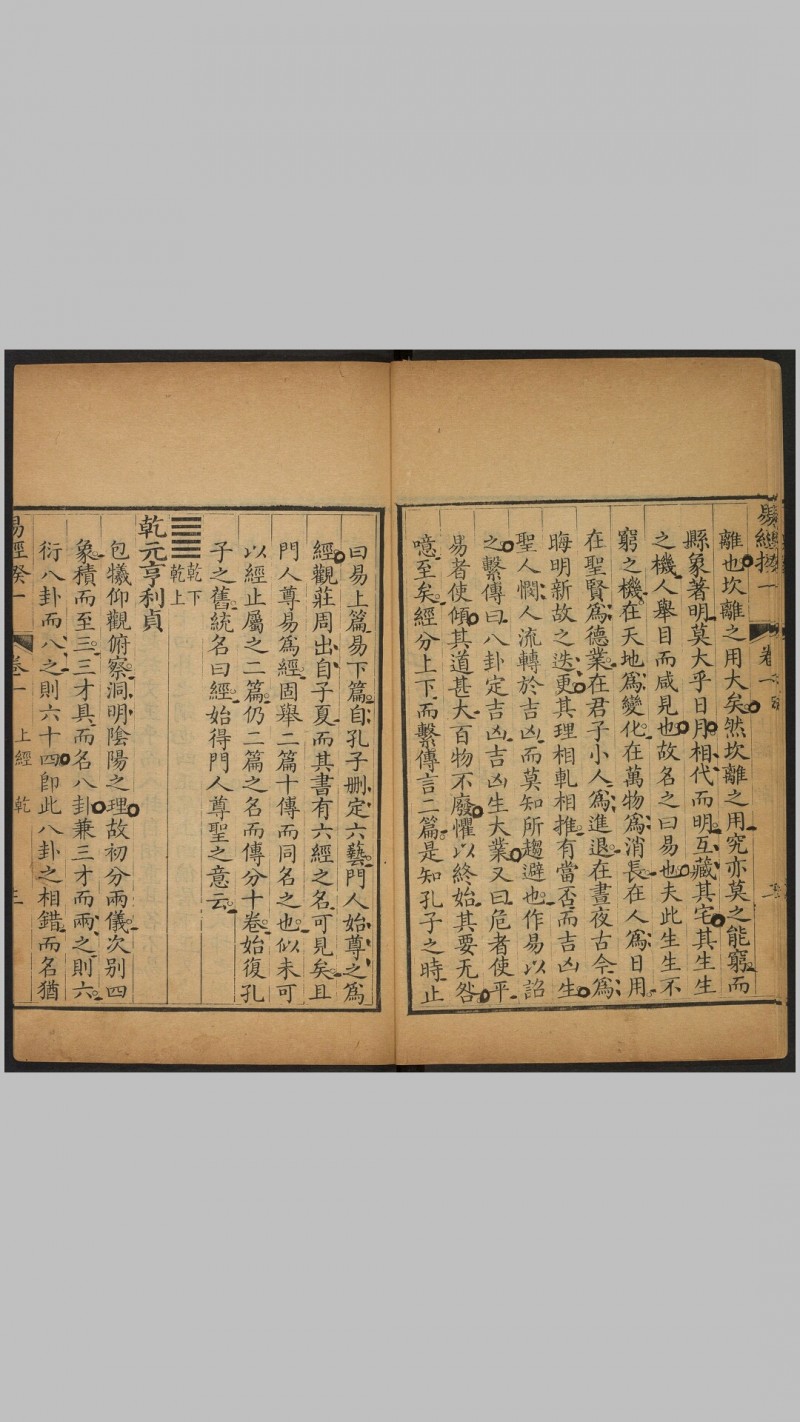 離也坎離之用大矣然坎離之用究亦莫之能窮而
縣象著明莫大乎日月相代而明互藏其宅其生生
之機人舉目而咸見也故名之曰易也夫此生生不
窮之機在天地爲變化在萬物爲消長在人爲日用
在聖賢爲德業在君子小人爲進退在晝夜古今爲
晦明新故之迭更其理相軋相推有當否而吉凶生
聖人憫人流轉於吉凶而莫知所趨避也作易以詔
之繫傳曰八卦定吉凶吉凶生大業又曰危者使平
易者使傾其道甚大百物不廢懼以終始其要无咎
噫至矣經分上下而繫傳言二篇是知孔子之時止
曰易上篇易下篇自孔子刪定六藝門人始尊之爲
經觀莊周出自子夏而其書有六經之名可見矣且
門人尊易爲經固舉二篇十傳而同名之也似未可
以經止屬之二篇仍二篇之名而傳分十卷始復孔
子之舊統名曰經始得門人尊聖之意云
乾下
乾上
乾元亨利貞
包犧仰觀俯察洞明陰陽之理故初分兩儀次别四
象積而至三三才具而名八卦兼三才而兩之則六
衍八卦而八之則六十四卽此八卦之相錯而名猶
卷一 上經 乾 三